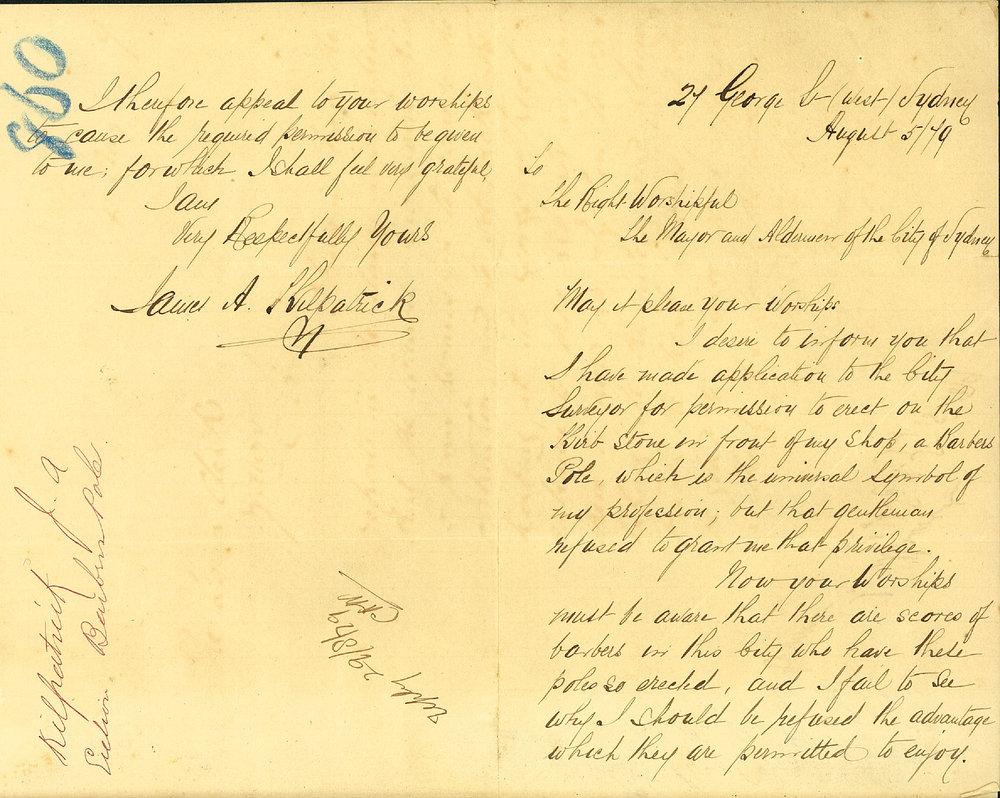 27 George St (West) Sydney
August 5/79
To
The Right Worshipful
The Mayor and Aldermen of the City of Sydney
May it please your Worships
I desire to inform you that
I have made application to the City
Surveyor for permission to erect on the
Kirb stone in front of my shop, a Barbers
Pole, which is the universal Symbol of
my profession; but that gentleman
refused to grant me that privilege.
Now your Worships
must be aware that there are scores of
barbers in this City who have these
poles so erected, and I fail to see
why I should be refused the advantage
which they are permitted to enjoy.
I therefore appeal to your worships
to cause the required permission to be given
to me; for which I shall feel very grateful,
I am
Very Respectfully Yours
James A. Kilpatrick
860
Kilpatrick J. A
Barbers pole